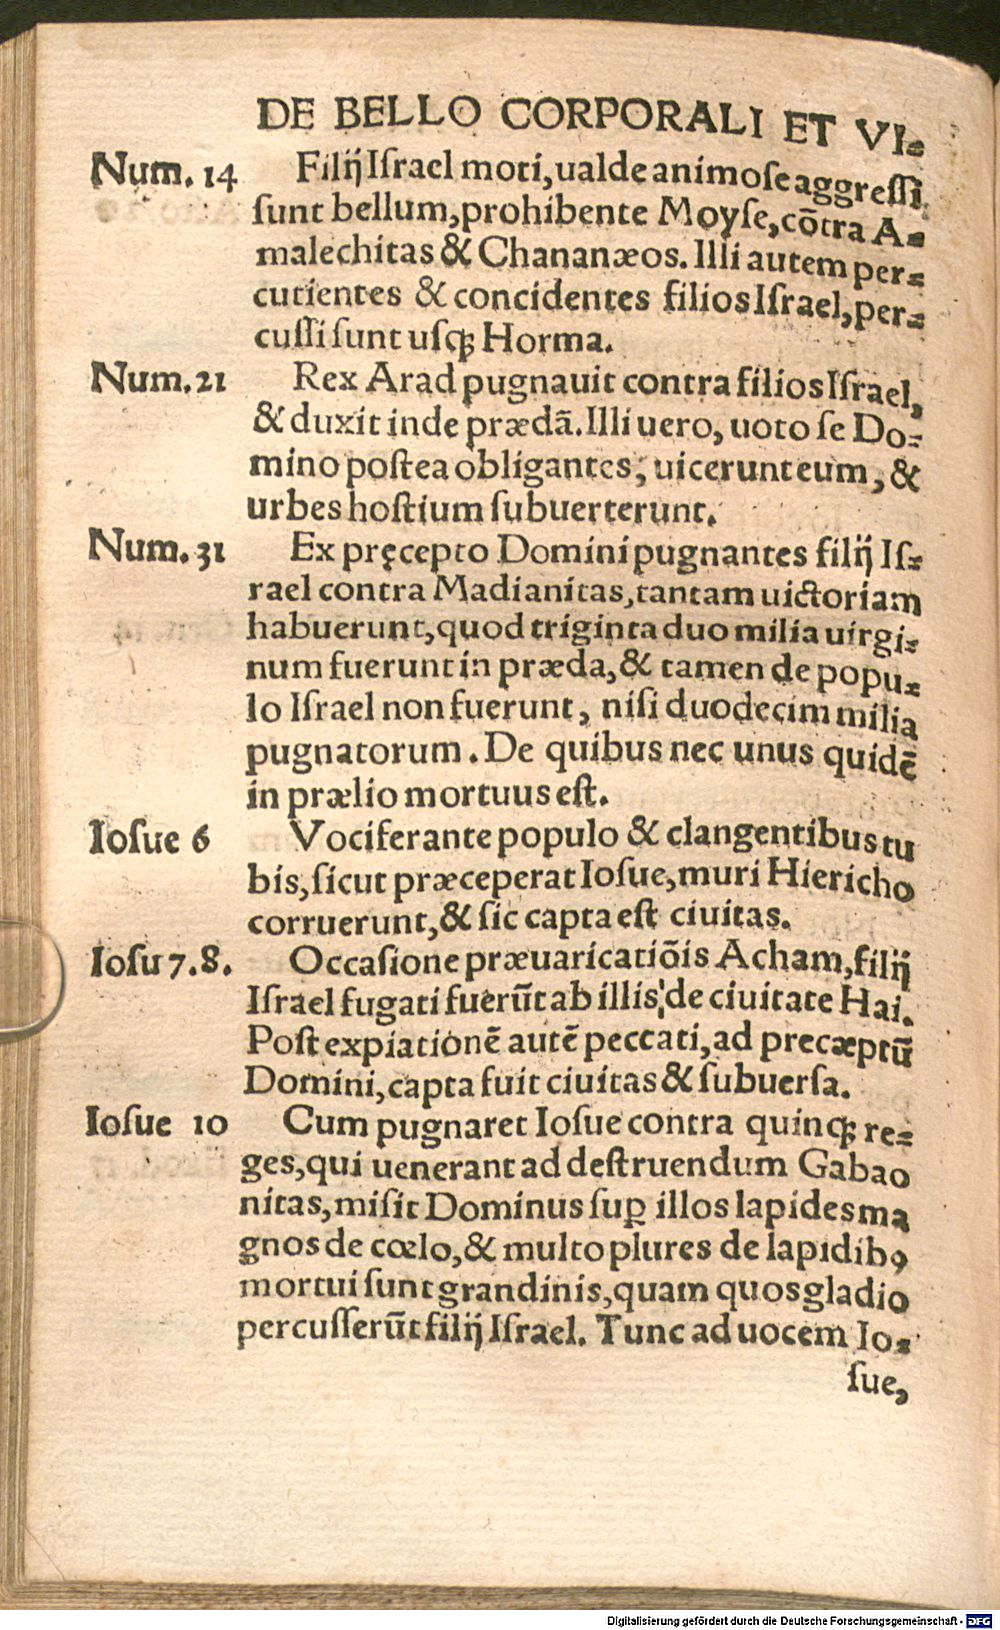 DE BELLO CORPORALI ET VI-
Num. 14 Filij Iſrael moti, ualde animoſe aggreſſi
ſunt bellum, prohibente Moyſe, cõtra A-
malechitas & Chananæos. Illi autem per-
cutientes & concidentes filios Iſrael, per-
cuſſi ſunt uſqꝫ Horma.
Num. 21 Rex Arad pugnauit contra filios Iſrael,
& duxit inde prædã. Illi uero, uoto ſe Do-
mino poſtea obligantes, uicerunt eum, &
urbes hoſtium ſubuerterunt.
Num. 31 Ex pręcepto Domini pugnantes filij Iſ-
rael contra Madianitas, tantam uictoriam
habuerunt, quod triginta duo milia uirgi-
num fuerunt in præda, & tamen de popu-
lo Iſrael non fuerunt, niſi duodecim milia
pugnatorum. De quibus nec unus quidẽ
in prælio mortuus eſt.
Ioſue 6 Vociferante populo & clangentibus tu
bis, ſicut præceperat Ioſue, muri Hiericho
corruerunt, & ſic capta eſt ciuitas.
Ioſu 7. 8. Occaſione præuaricatiõis Acham, filij
Iſrael fugati fuerũt ab illis, de ciuitate Hai.
Poſt expiationẽ autẽ peccati, ad precæptũ
Domini, capta fuit ciuitas & ſubuerſa.
Ioſue 10 Cum pugnaret Ioſue contra quinqꝫ re-
ges, qui uenerant ad deſtruendum Gabao
nitas, miſit Dominus ſuꝑ illos lapides ma
gnos de cœlo, & multo plures de lapidibꝰ
mortui ſunt grandinis, quam quos gladio
percuſſerũt filij Iſrael. Tunc ad uocem Io-
ſue,
Digitalisierung gefördert durch die Deutsche Forschungsgemeinschaft - DFG